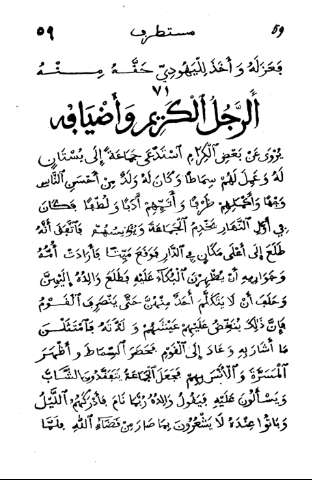 ٥٩ مستطرف ٥٩
فعزله و أخذ لليهودي حقه منه
٧١
الرجل الكريم وأضيافه
يروى عن بعض الكرام استدعى جماعة إلى بستان
له وعمل لهم سماطا وكان له ولد من أحسن الناس
وجها وأكملهم ظرفا و أتمهم أدبا و لطفا فكان
في أول النهار يخدم الجماعة ويؤنسهم فاتفق أنه
طلع إلى أعلى مكان في الدار فوقع ميتا فأرادت أمه
وجواريه أن يظهرن البكاء عليه فطلع والده إليهن
وحلف أن لا يتكلم أحد منهن حتى ينصرف القوم
فإن ذلك ينغص عليهم عيشهم و لذتهم فامتثلن
ما أشار به و عاد إلى القوم فحضر السماط و أظهر
المسرة و الأنس بهم فجعل الجماعة يتفقدون الشاب
و يسألون عليه فيقول والده ربما نام فأدركهم الليل
وباتوا عنده لا يشعرون بما صار من قضاء الله فلما